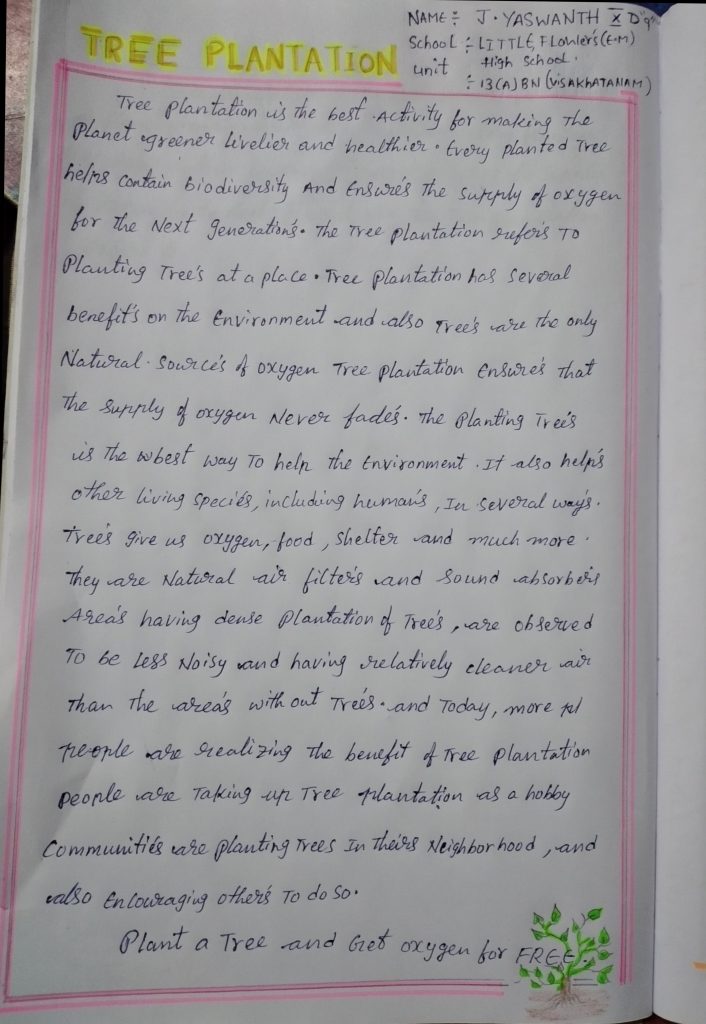 TREE PLANTATION
NAME :- J. YASWANTH X D "9"
School :- LITTLE Flowler's (E.M)
High School.
unit :- 13(A) BN (VISAKHATANAM)
Tree plantation is the best Activity for making The
Planet greener livelier and healthier. Every planted Tree
helps contain biodiversity And Ensure's The supply of oxygen
for The Next generation's. The Tree plantation refer's To
Planting Tree's at a place. Tree Plantation has several
benefit's on The Environment and also Tree's are The only
Natural Source's of oxygen Tree plantation Ensure's That
The supply of oxygen Never fade's. The Planting Tree's
is The best way To help The Environment. It also help's
other living specie's, including human's, In several way's.
Tree's give us oxygen, food, shelter and much more.
They are Natural air filter's and sound absorber's
Area's having dense Plantation of Tree's, are observed
To be Less Noisy and having relatively cleaner air
Than The area's with out Tree's. and Today, more pl
people are realizing The benefit of Tree plantation
People are Taking up Tree plantation as a hobby
Communitie's are planting Trees In Their's Neighborhood, and
also Encouraging other's To do so.
Plant a Tree and Get oxygen for FREE.